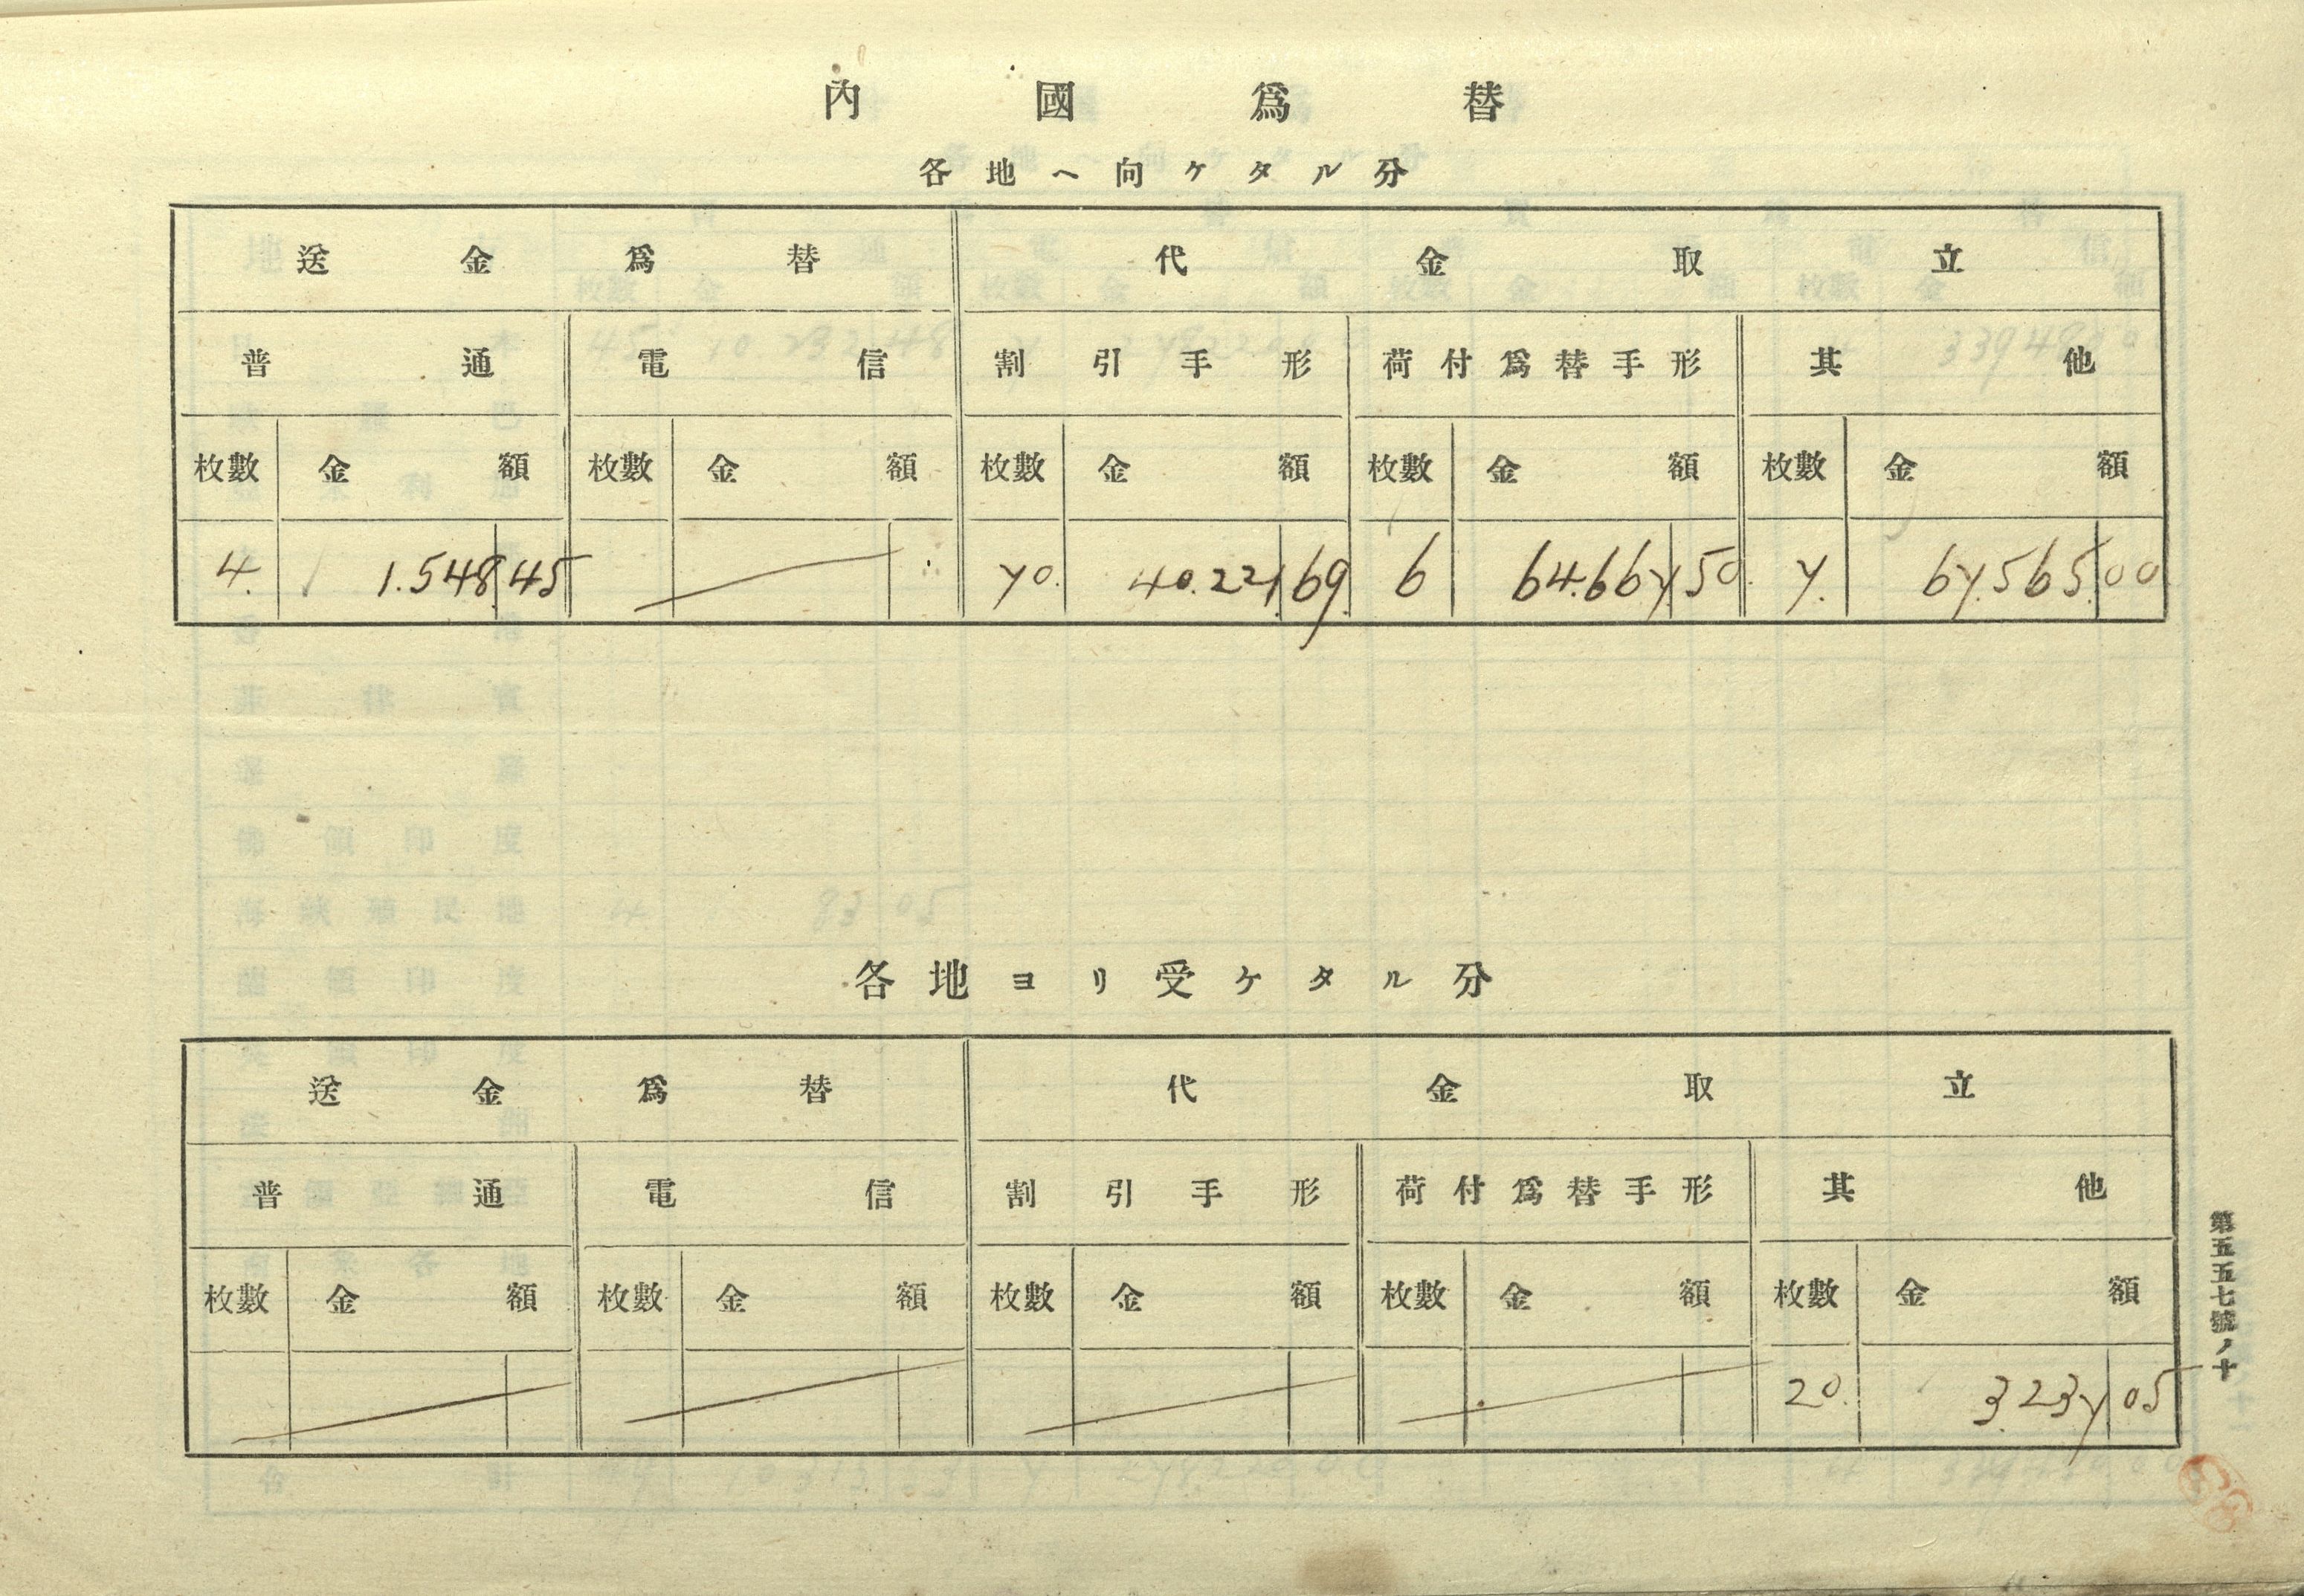 內國爲替
各地へ向ケタル分
送金爲替 代金取立
普通 電信 割引手形 荷付爲替手形 其他
枚數 金額 枚數 金額 枚數 金額 枚數 金額 枚數 金額
4. 1.548.45 70. 40.221.69 6 64.667.50 7. 67.565.00
各地ヨリ受ケタル分
送金爲替 代金取立
普通 電信 割引手形 荷付爲替手形 其他
枚數 金額 枚數 金額 枚數 金額 枚數 金額 枚數 金額
20. 3.237 05
第五五七號ノ十